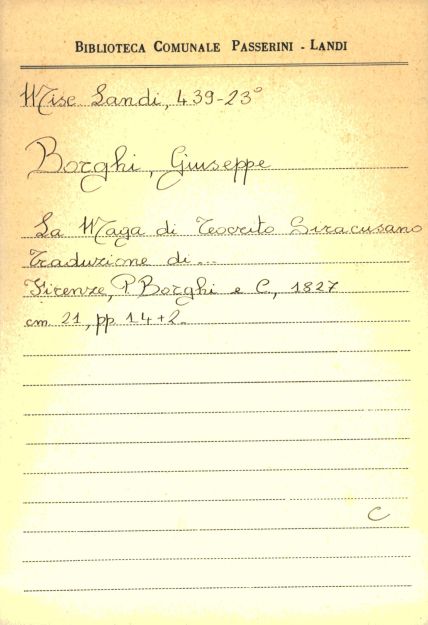 BIBLIOTECA COMUNALE PASSERINI - LANDI
Misc Landi, 439-23°
Borghi, Giuseppe
La Maga di Teocrito Siracusano
Traduzione di...
Firenze, P. Borghi e C, 1827
cm 21, pp 14+2.
C